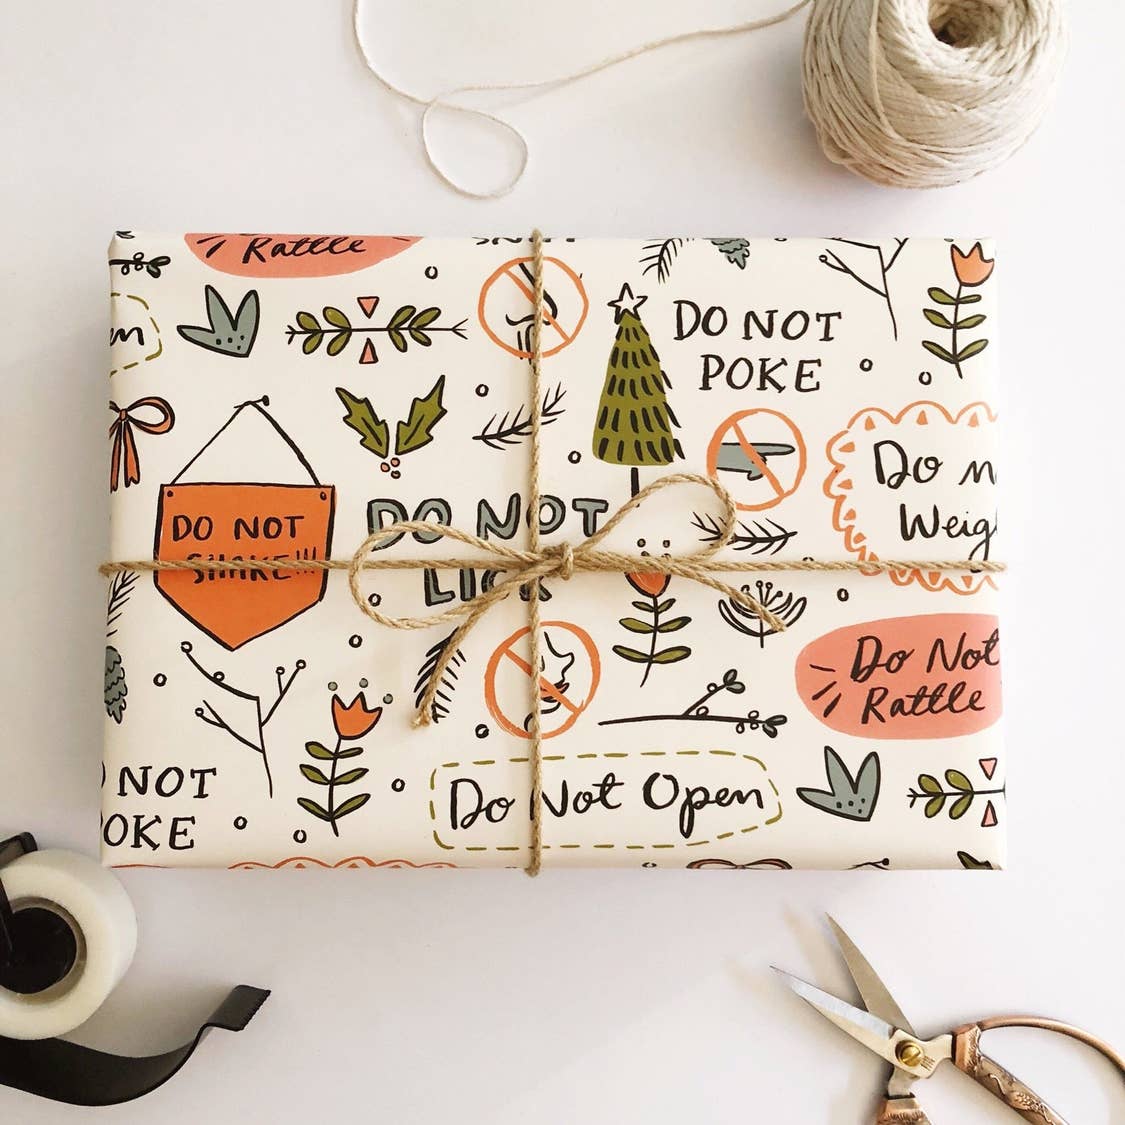 Rattle
DO NOT
POKE
Do n
Weig
DO NOT
SHAKE!!!
DO NOT
LICK
Do Not
Rattle
NOT
OKE
Do Not Open